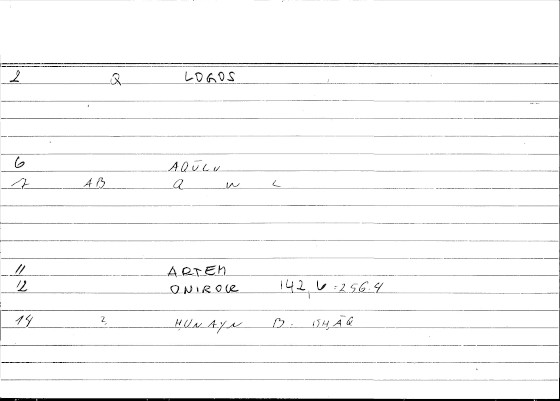 2 Q LOGOS
6 AQŪLU
7 AB Q W L
11 ARTEM
12 ONIROCR 142,6 = 256.4
14 2 ḤUNAYN B. ISḤĀQ